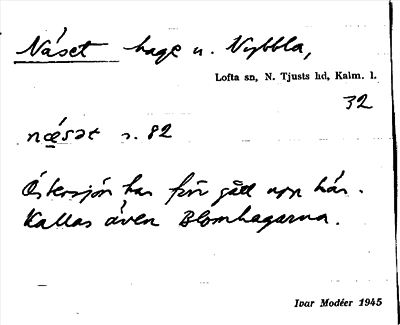 Näset hage u. Nybbla,
Lofta sn, N. Tjusts hd, Kalm. l.
32
næsət s. 82
Östersjön har förr gått upp här.
Kallas även Blomhagarna.
Ivar Modéer 1945